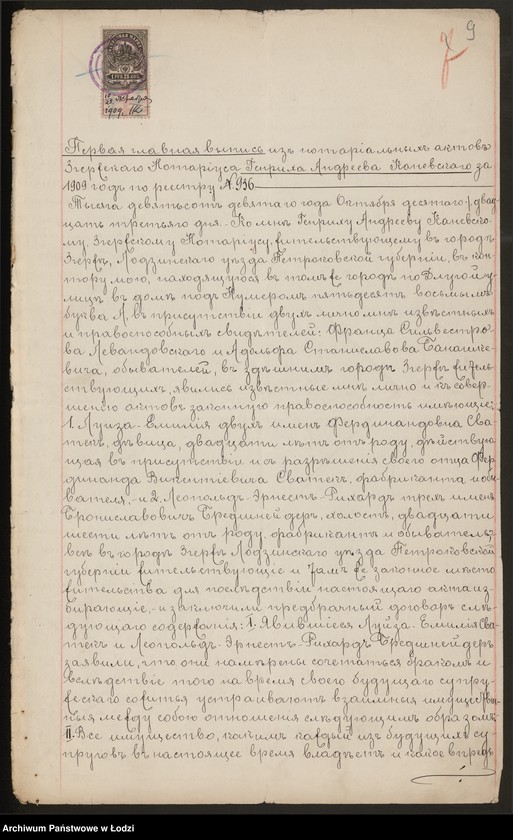 9
1 РУБ. 25 КОП.
1909
Первая главная выпись изъ нотаріальныхъ актовъ
Згержскаго Нотаріуса Генриха Андреева Каневскаго за
1909 годъ по реестру № 936
Тысяча девятьсотъ девятаго года Октября десятаго / двад
цать третьяго дня. Ко мнѣ Генриху Андрееву Каневско
му, Згержскому Нотаріусу, жительствующему въ городѣ
Згержѣ, Лодзинскаго уѣзда Петроковской губерніи, въ кон
тору мою, находящуюся въ томъ же городѣ по Длугой у
лицѣ въ домѣ подъ Нумеромъ пятьдесятъ восьмымъ
буква А, въ присутствіи двухъ лично мнѣ извѣстныхъ
и правоспособныхъ свидѣтелей: Франца Сильвестро
ва Левандовскаго и Адольфа Станиславова Банашке
вича, обывателей, въ здѣшнемъ городѣ Згержѣ житель
ствующихъ, явились извѣстные мнѣ лично и къ совер
шенію актовъ законную правоспособность имѣющіе:
1. Луиза-Емилія двухъ именъ Фердинандовна Сва
текъ, дѣвица, двадцати лѣтъ отъ роду, дѣйствую
щая въ присутствіи и съ разрѣшенія своего отца Фер
динанда Викентіевича Сватекъ, фабриканта и обы
вателя, и 2. Леопольдъ-Эрнестъ-Рихардъ трехъ именъ
Брониславовичъ Бредшнейдеръ, холостъ, двадцати
шести лѣтъ отъ роду, фабрикантъ и обыватель,
всѣ въ городѣ Згержѣ Лодзинскаго уѣзда Петроковской
губерніи жительствующіе и тамъ же законное мѣсто
жительства для послѣдствій настоящаго акта из
бирающіе, и заключили предбрачный договоръ слѣ
дующаго содержанія: I. Явившіеся Луиза-Емилія Сва
текъ и Леопольдъ-Эрнестъ-Рихардъ Бредшнейдеръ
заявили, что они намѣрены сочетаться бракомъ и
вслѣдствіе того на время своего будущаго супру
жескаго сожитья устраиваютъ взаимныя имуществен
ныя между собою отношенія слѣдующимъ образомъ:
II. Все имущество, какимъ каждый изъ будущихъ су
пруговъ въ настоящее время владѣетъ и какое впредь
Archiwum Państwowe w Łodzi